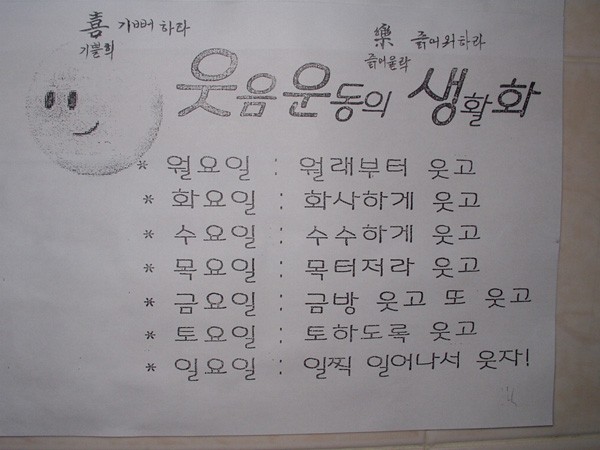 喜 기뻐하라
기쁠희
樂 즑어워하라
즑어울락
웃음운동의 생활화
* 월요일 : 월래부터 웃고
* 화요일 : 화사하게 웃고
* 수요일 : 수수하게 웃고
* 목요일 : 목터저라 웃고
* 금요일 : 금방 웃고 또 웃고
* 토요일 : 토하도록 웃고
* 일요일 : 일찍 일어나서 웃자!